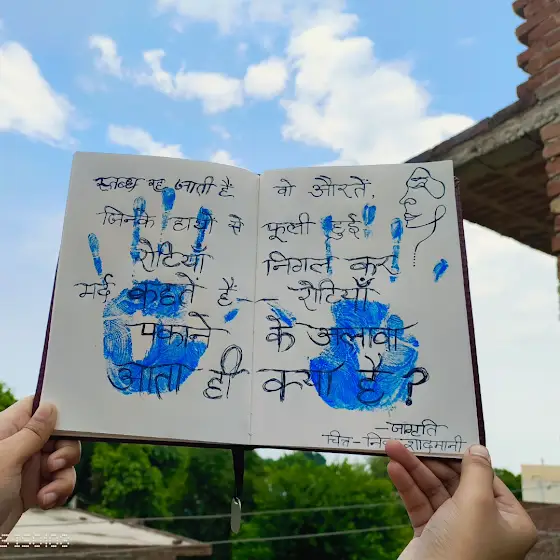 स्तब्ध रह जाती है वो औरतें,
जिनके हाथों से फूली हुई
रोटियाँ निगल कर
मर्द कहते हैं— रोटियाँ
पकाने के अलावा
आता ही क्या है?
जागृति
चित्त-